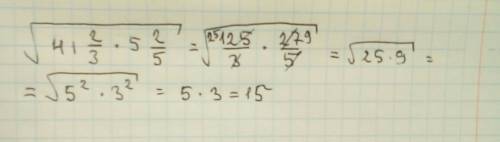 √(41 2/3 · 5 2/5) = √(²⁵1̶2̶5̶/3̶ · 2̶7̶ 9/5̶) = √(25·9) =
= √(5² · 3²) = 5 · 3 = 15